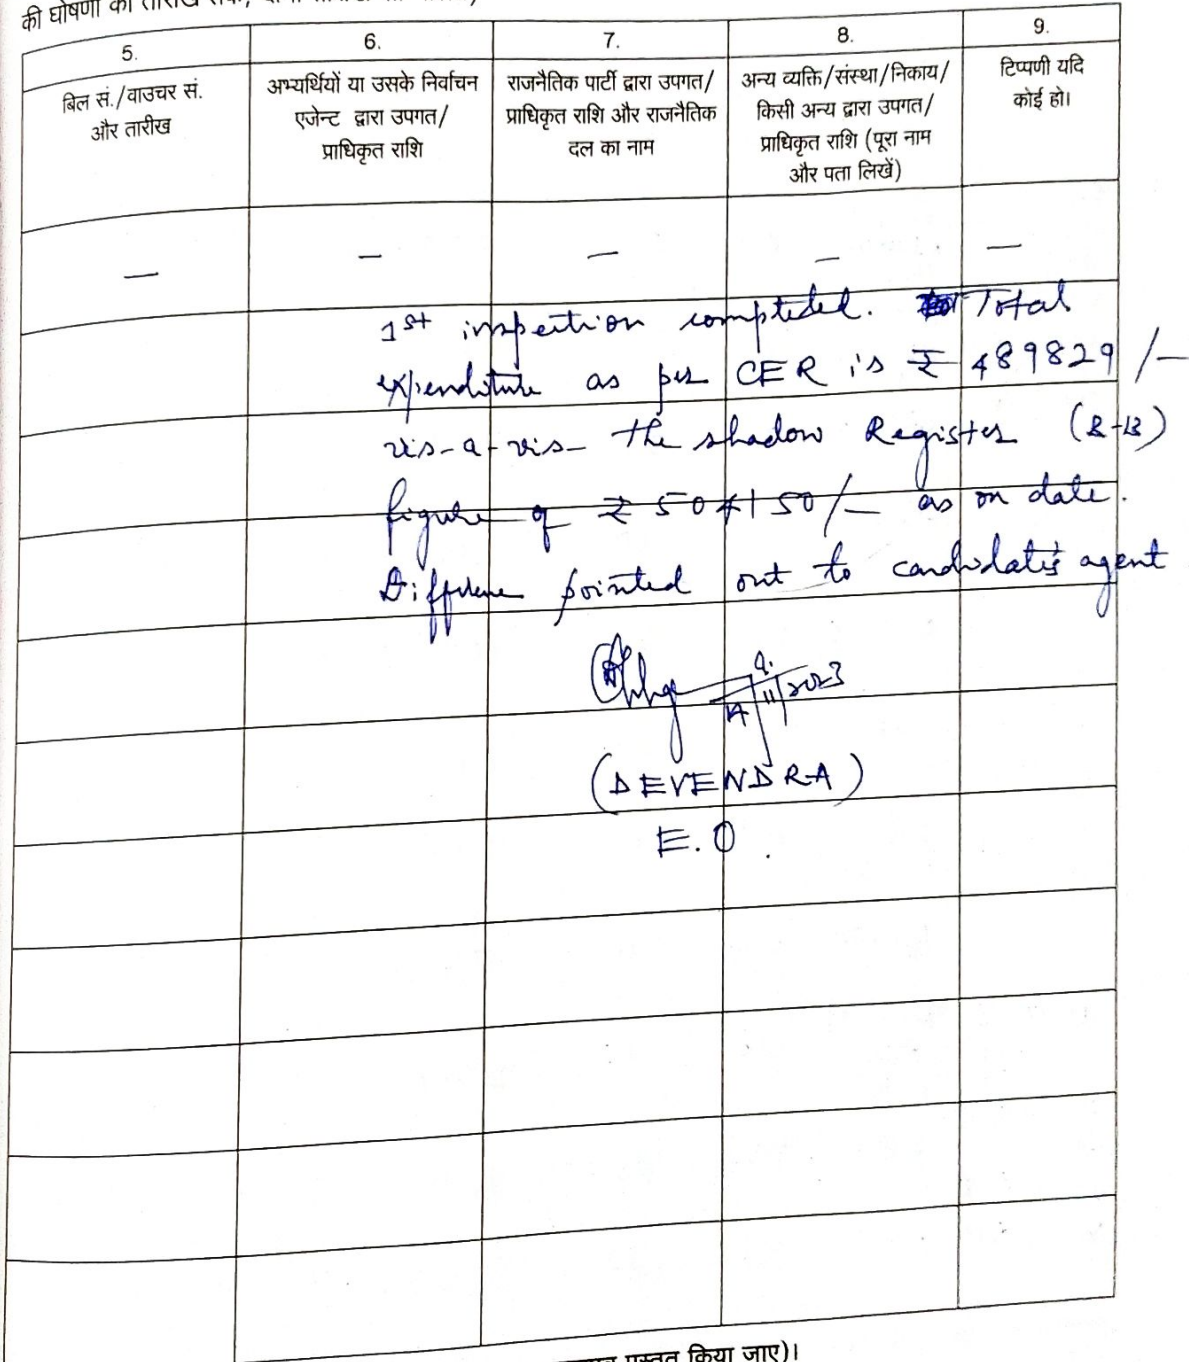 की घोषणा की तारीख तक,
5. 6. 7. 8. 9.
बिल सं./वाउचर सं.
और तारीख
अभ्यर्थियों या उसके निर्वाचन
एजेन्ट द्वारा उपगत/
प्राधिकृत राशि
राजनैतिक पार्टी द्वारा उपगत/
प्राधिकृत राशि और राजनैतिक
दल का नाम
अन्य व्यक्ति/संस्था/निकाय/
किसी अन्य द्वारा उपगत/
प्राधिकृत राशि (पूरा नाम
और पता लिखें)
टिप्पणी यदि
कोई हो।
— — — — —
1st inspection completed. Total
expenditure as per CER is ₹ 489829/-
vis-a-vis- the shadow Register
figure of ₹ 504150/- as on date.
Difference pointed out to candidate's agent
11/2023
(DEVENDRA)
E.O.
प्रस्तुत किया जाए)।